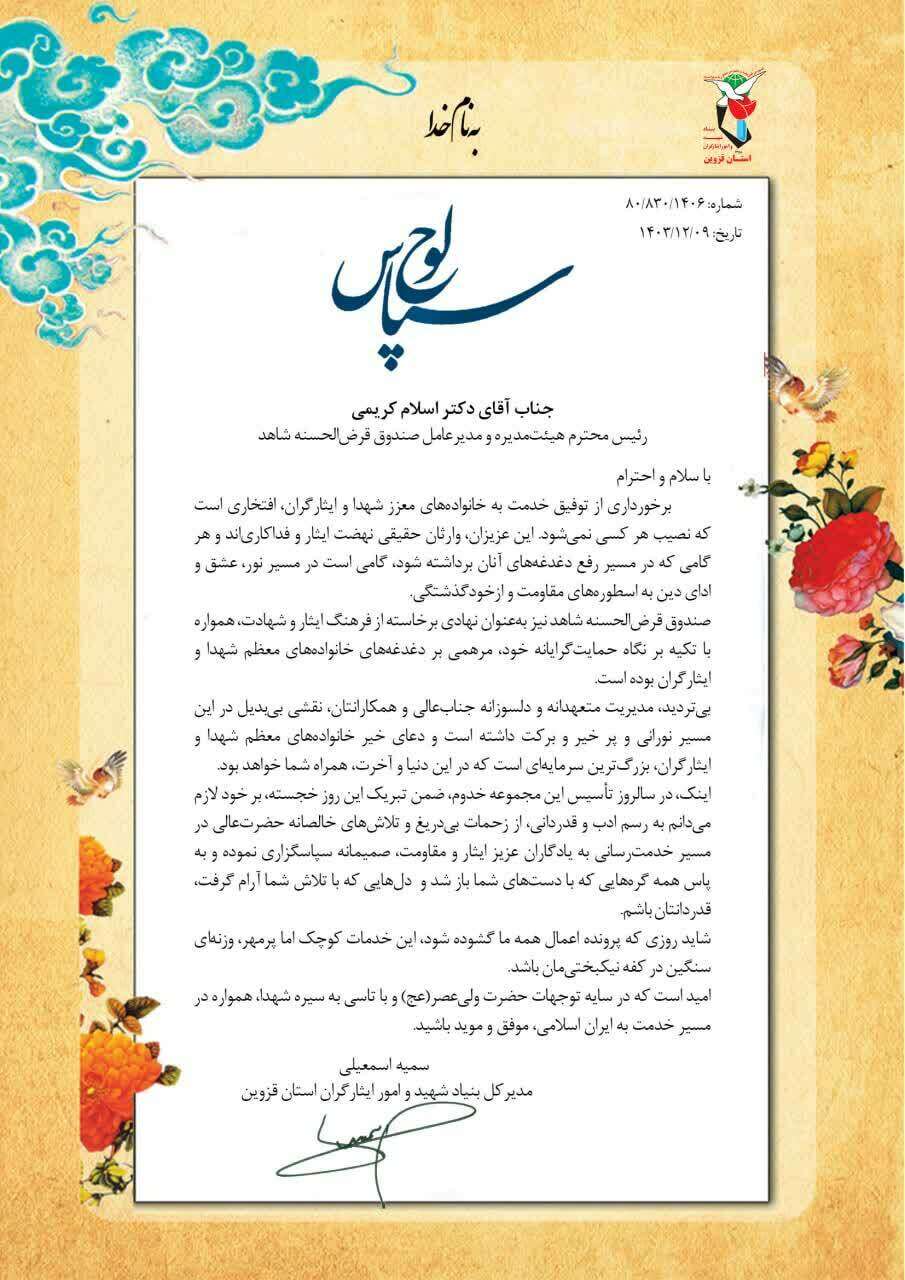 به نام خدا
بنیاد
شهید
و امور ایثارگران
استان قزوین
شماره: ۸۰/۸۳۰/۱۴۰۶
تاریخ: ۱۴۰۳/۱۲/۰۹
لوح سپاس
جناب آقای دکتر اسلام کریمی
رئیس محترم هیئت‌مدیره و مدیرعامل صندوق قرض‌الحسنه شاهد
با سلام و احترام
برخورداری از توفیق خدمت به خانواده‌های معزز شهدا و ایثارگران، افتخاری است
که نصیب هر کسی نمی‌شود. این عزیزان، وارثان حقیقی نهضت ایثار و فداکاری‌اند و هر
گامی که در مسیر رفع دغدغه‌های آنان برداشته شود، گامی است در مسیر نور، عشق و
ادای دین به اسطوره‌های مقاومت و ازخودگذشتگی.
صندوق قرض‌الحسنه شاهد نیز به‌عنوان نهادی برخاسته از فرهنگ ایثار و شهادت، همواره
با تکیه بر نگاه حمایت‌گرایانه خود، مرهمی بر دغدغه‌های خانواده‌های معظم شهدا و
ایثارگران بوده است.
بی‌تردید، مدیریت متعهدانه و دلسوزانه جناب‌عالی و همکارانتان، نقشی بی‌بدیل در این
مسیر نورانی و پر خیر و برکت داشته است و دعای خیر خانواده‌های معظم شهدا و
ایثارگران، بزرگ‌ترین سرمایه‌ای است که در این دنیا و آخرت، همراه شما خواهد بود.
اینک، در سالروز تأسیس این مجموعه خدوم، ضمن تبریک این روز خجسته، بر خود لازم
می‌دانم به رسم ادب و قدردانی، از زحمات بی‌دریغ و تلاش‌های خالصانه حضرت‌عالی در
مسیر خدمت‌رسانی به یادگاران عزیز ایثار و مقاومت، صمیمانه سپاسگزاری نموده و به
پاس همه گره‌هایی که با دست‌های شما باز شد و دل‌هایی که با تلاش شما آرام گرفت،
قدردانتان باشم.
شاید روزی که پرونده اعمال همه ما گشوده شود، این خدمات کوچک اما پرمهر، وزنه‌ای
سنگین در کفه نیکبختی‌مان باشد.
امید است که در سایه توجهات حضرت ولی‌عصر(عج) و با تاسی به سیره شهدا، همواره در
مسیر خدمت به ایران اسلامی، موفق و موید باشید.
سمیه اسمعیلی
مدیرکل بنیاد شهید و امور ایثارگران استان قزوین